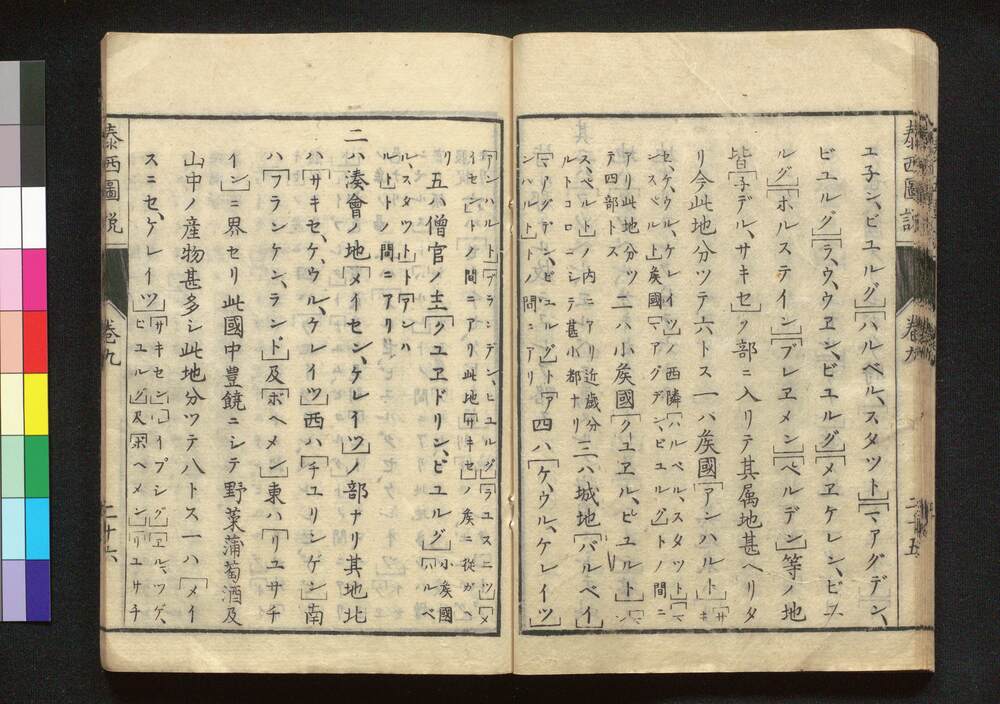 泰西圖説 巻九 二十五
ユ子ン、ビユルグ」「ハルベル、スタツト」「マアグデン、
ビユルグ」「ラ、ウヱン、ビユルグ」「メヱケレン、ビユ
ルグ」「ホルステイン」「ブレヱメン」「ベルデン」等ノ地
皆「子デル、サキセ」ク部ニ入リテ其属地甚ヘリタ
リ今此地分ツテ六トス一ハ矦國「アンハルト」「サキ
セ、ケ、ウル、ケレイツ」ノ西隣「ハルベル、スタツト」「マ
ンスペルト」矦國「マアグデン、ビユルグ」トノ間ニ
アリ此地分ツ
テ四部トス
二ハ小矦國「クユヱル、ビユルト」「ン
ス、ベルト」ノ内ニアリ近歳分
ルトコロニシテ甚小郡ナリ
三ハ城地「バルベイ」
「マアグデン、ビユルグ」ト「ア
ンハルト」トノ間ニアリ
四ハ「ケ、ウル、ケレイツ」
「アンハルト」「ブランデン、ビユルグ」「ラユスニツ」「メ
イセン」トノ間ニアリ此地「サキセ」ノ矦ニ従ガヘ
リ
五ハ僧官ノ主「クユヱドリン、ビユルグ」小矦國「ハルベ
ル、スタツト」ト「アンハ
ルト」トノ間ニアリ
二ハ湊會ノ地「メイセン、ケレイツ」ノ部ナリ其地北
ハ「サキセ、ケ、ウル、ケレイツ」西ハ「チユリンゲン」南
ハ「フランケン、ランド」及「ボヘメン」東ハ「リユサチ
イン」ニ界セリ此國中豊饒ニシテ野菜蒲萄酒及
山中ノ産物甚多シ此地分ツテ八トス一ハ「メイ
スニセ、ケレイツ」「サキセン」「イプシグ」「ヱル、ツゲ、
ビユルグ」及「ボヘメン」「リユサチ
泰西圖説 巻九 二十六